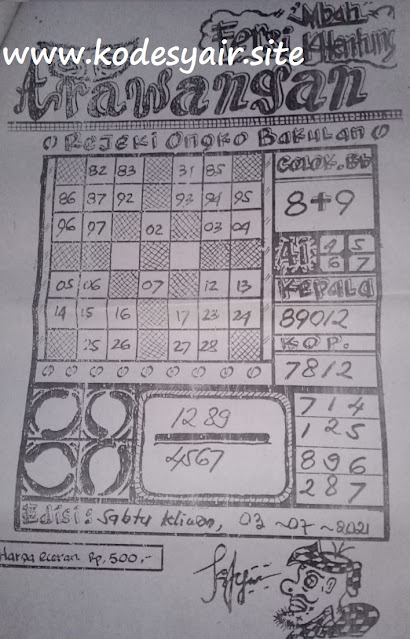 www.kodesyair.site
Versi Mbah
K Hantung
Arawangan
Rejeki Ongko Bakulan
82 83 31 85
86 87 92 93 94 95
96 97 02 03 04
05 06 07 12 13
14 15 16 17 23 24
25 26 27 28
COLOK.BB
8+9
AI 4 5
6 7
KEPALA
89012
KOP.
7812
1289
4567
714
125
896
287
Edisi: Sabtu Kliwon, 03 ~07 ~ 2021
Harga eceran Rp, 500,-